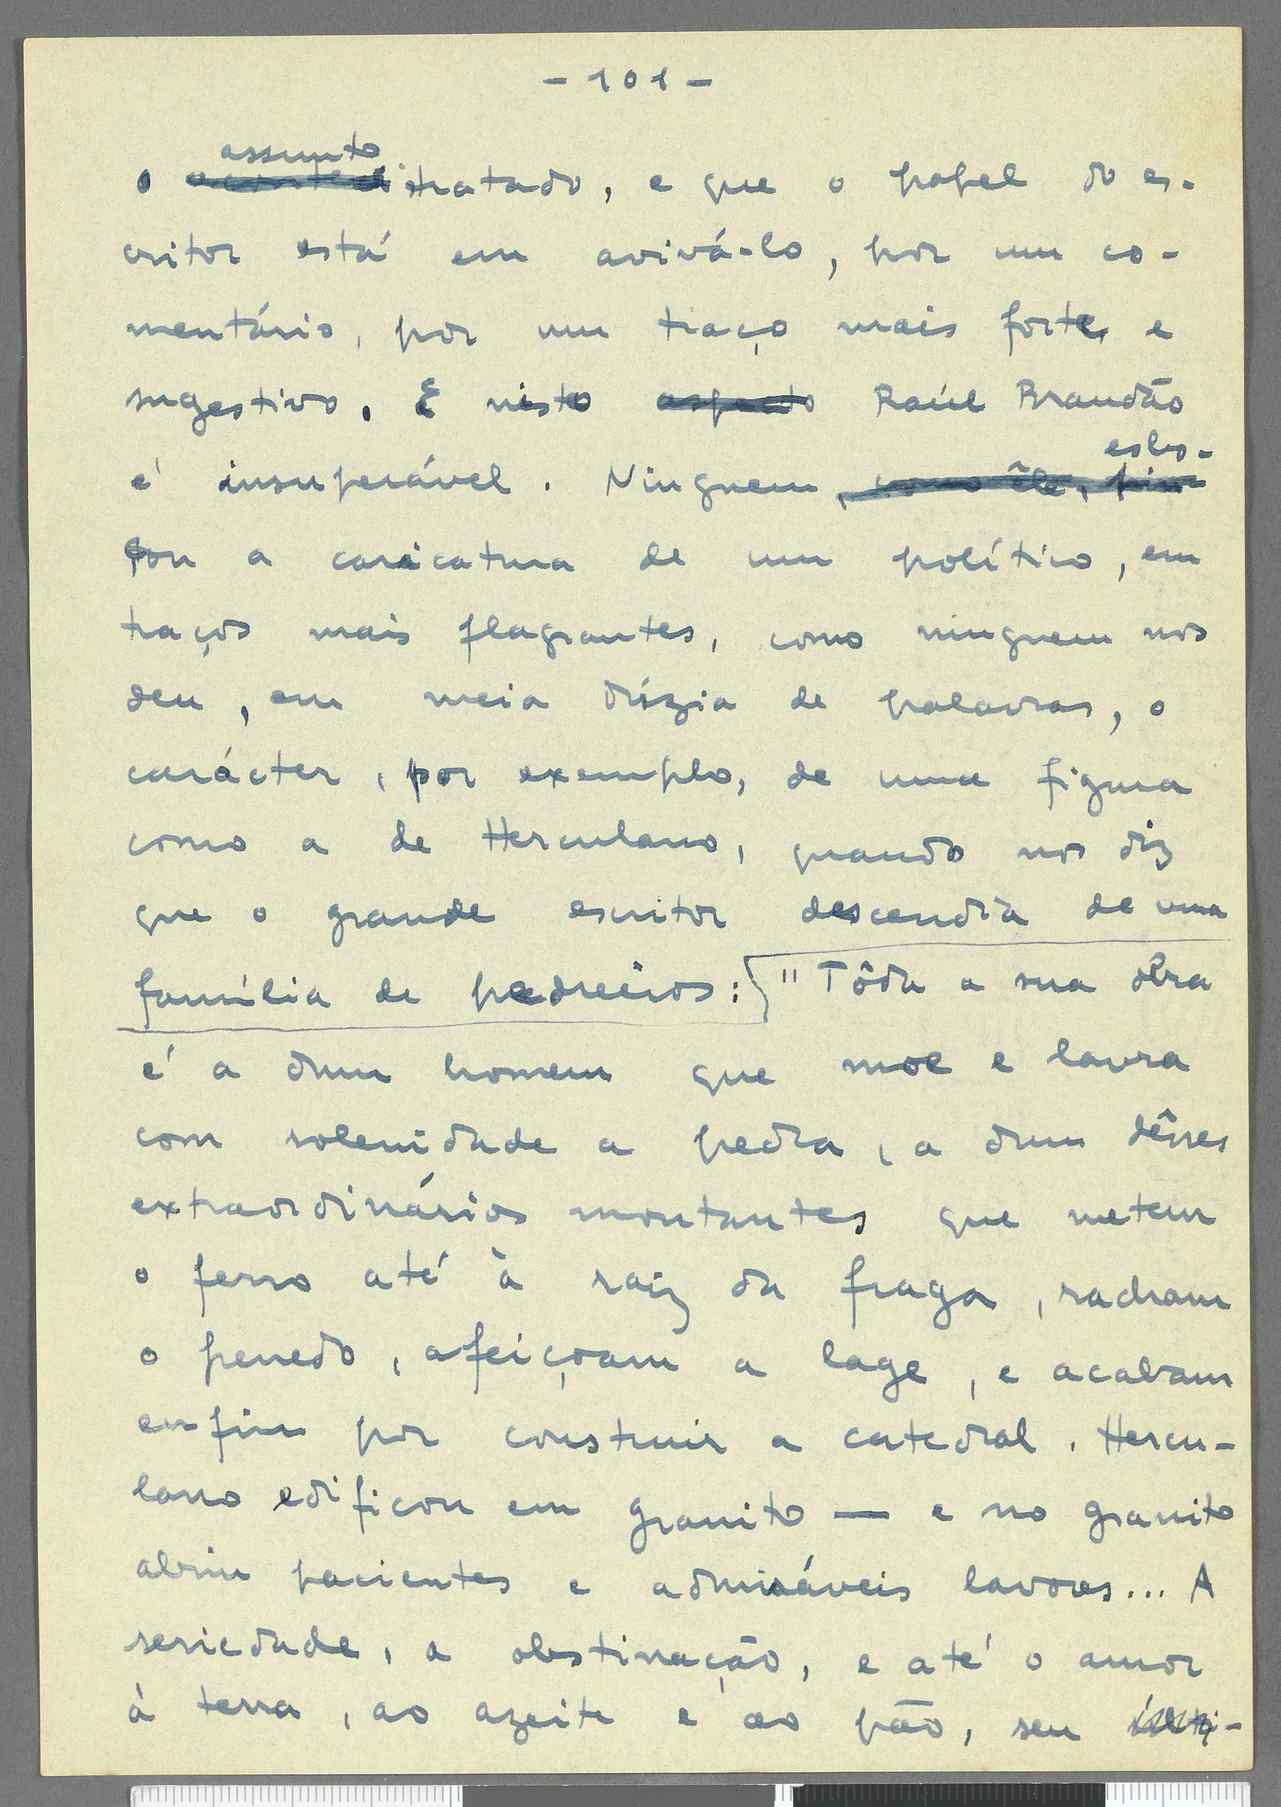 - 101 -
assunto
o tratado, e que o papel do es-
critor está em avivá-lo, por um co-
mentário, por um traço mais forte e
sugestivo. E nisto aspecto Raúl Brandão
esbo-
é insuperável. Ninguem, como êle, pin-
çou a caricatura de um político, em
traços mais flagrantes, como ninguem nos
deu, em meia dúzia de palavras, o
carácter, por exemplo, de uma figura
como a de Herculano, quando nos diz
que o grande escritor descendia de uma
família de pedreiros: "Tôda a sua obra
é a dum homem que moe e lavra
com solenidade a pedra, a dum dêsses
extraordinários montantes que metem
o ferro até à raiz da fraga, racham
o penedo, afeiçoam a lage, e acabam
enfim por construir a catedral. Hercu-
lano edificou em granito — e no granito
abriu pacientes e admiráveis lavores... A
seriedade, a obstinação, e até o amor
à terra, ao azeite e ao pão, seu